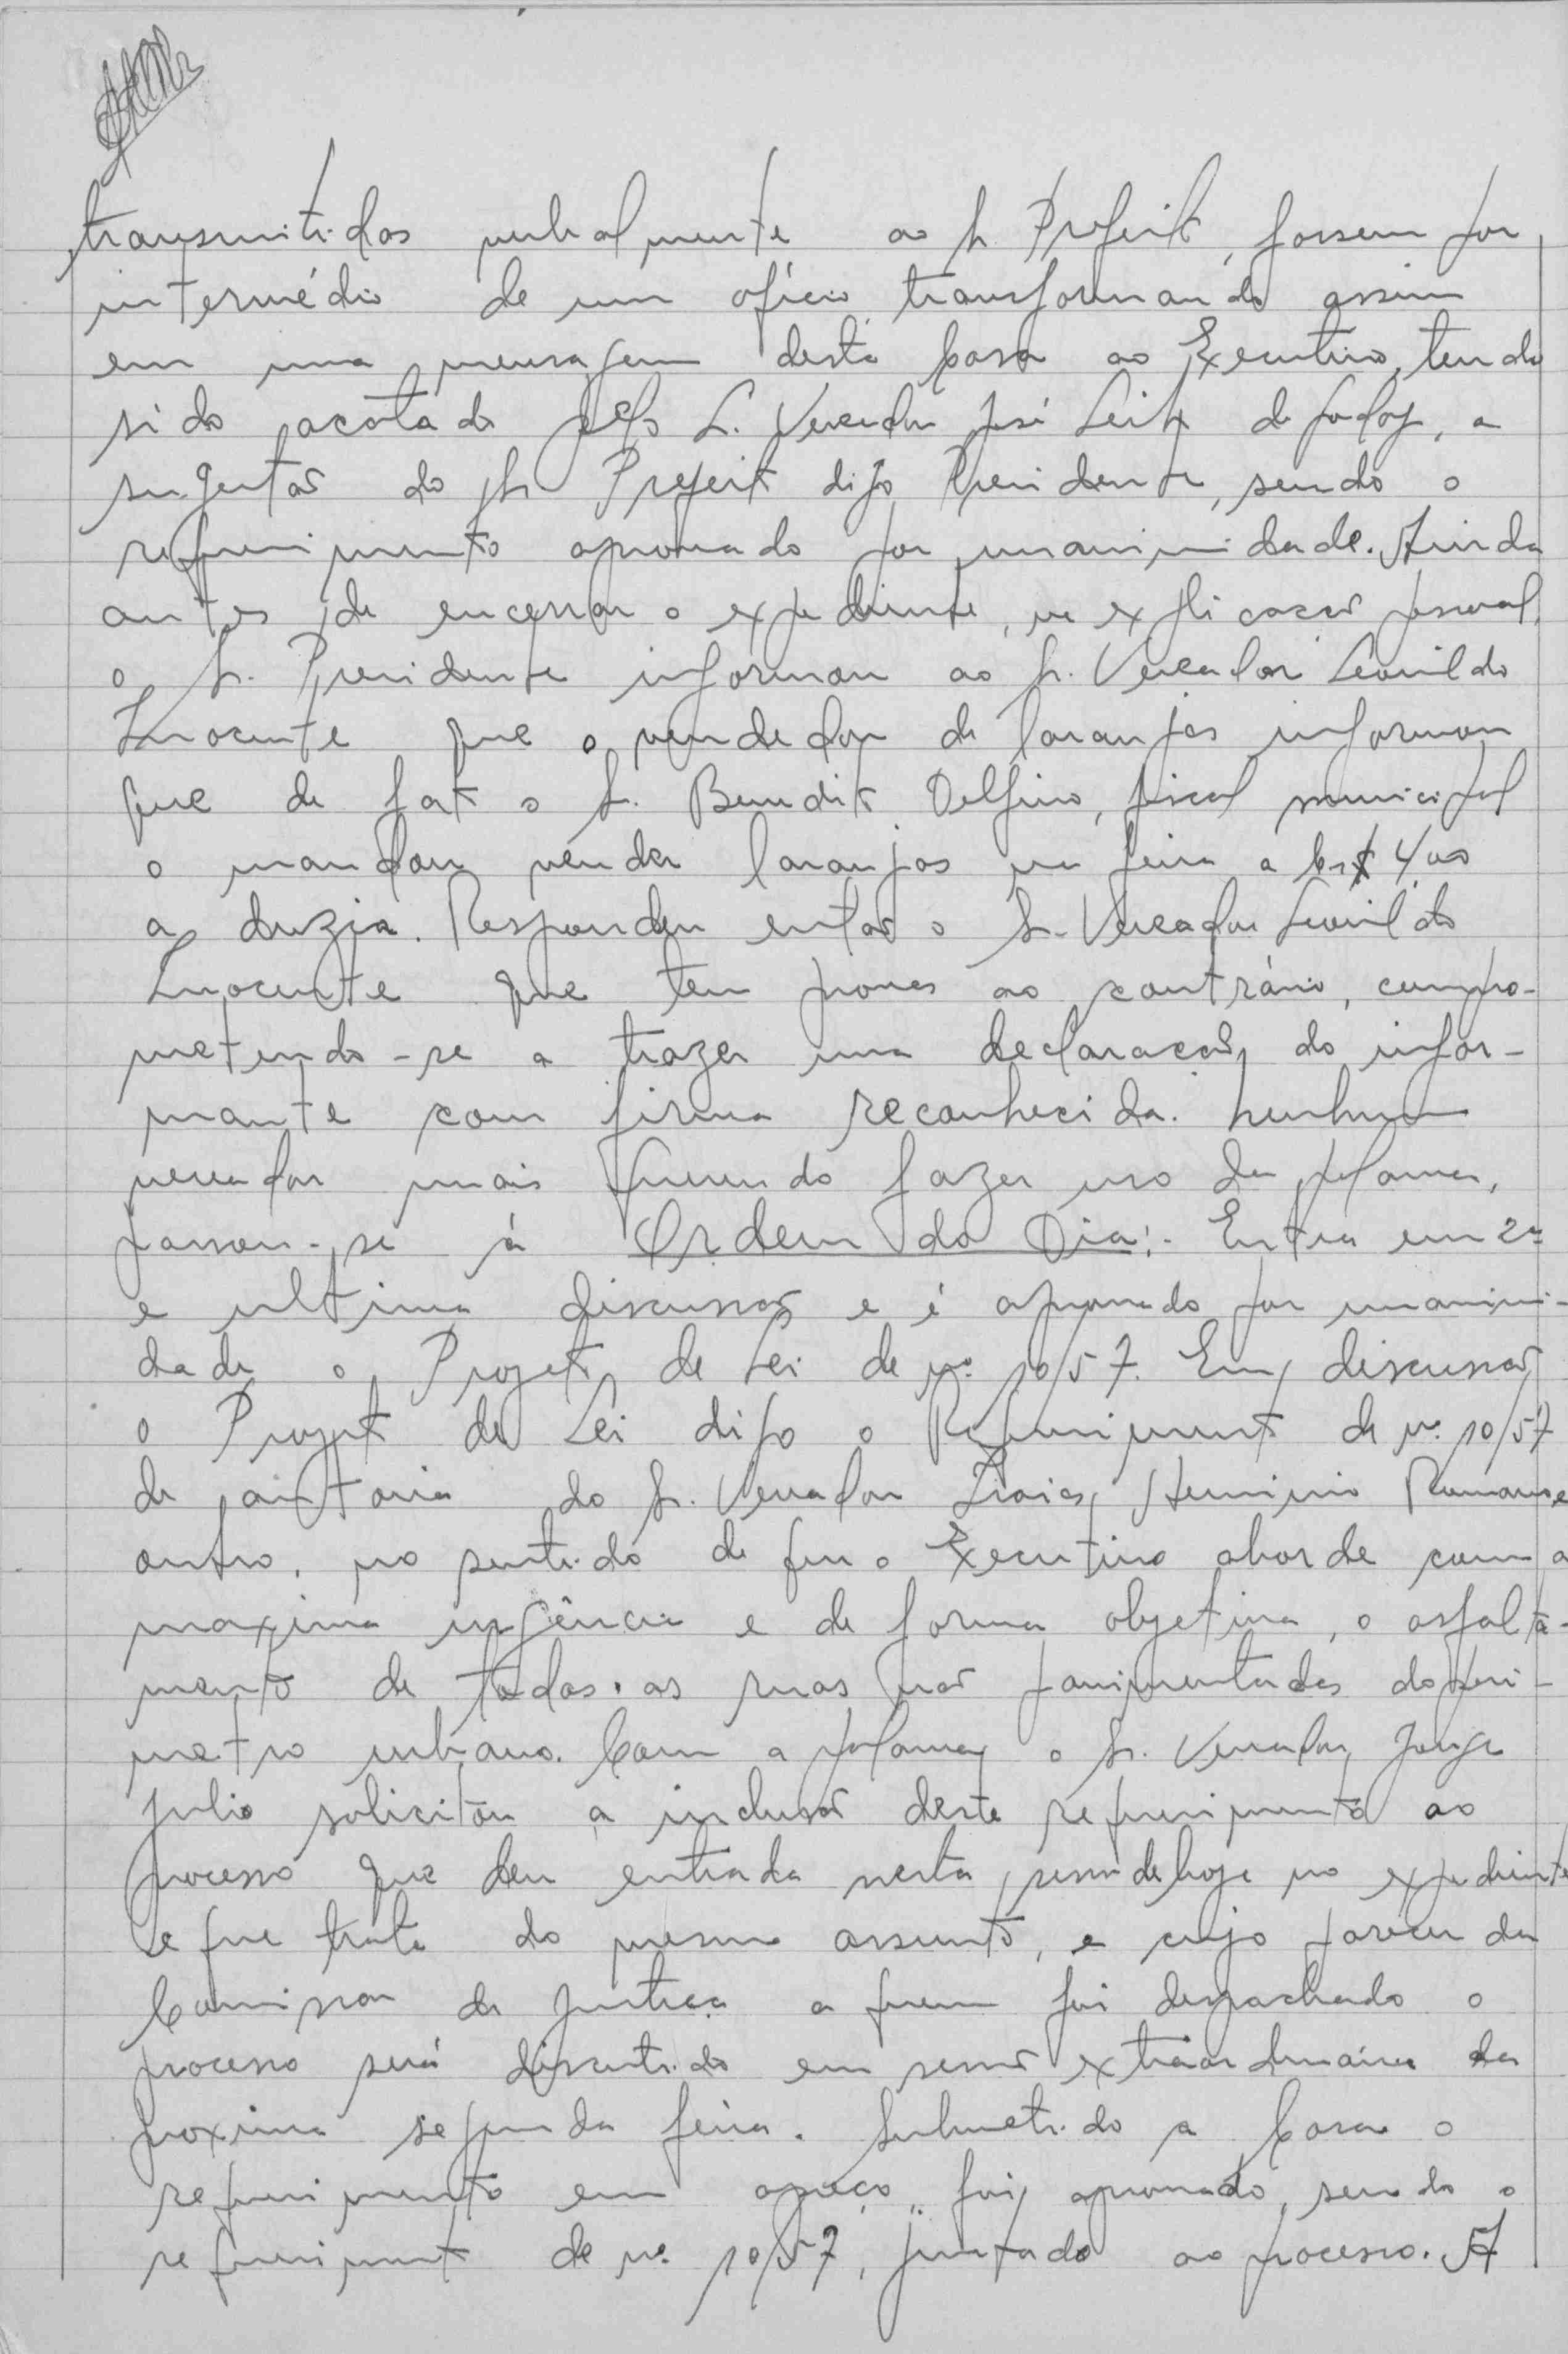 transmitidos verbalmente ao Sr. Prefeito, fossem por
intermédio de um ofício, transformando assim
em uma mensagem desta Casa ao Executivo, tendo
sido acatada pelo Sr. Vereador José Leite de Godoy, a
sugestão do Sr. Prefeito digo Presidente, sendo o
requerimento aprovado por unanimidade. Ainda
antes de encerrar o expediente, em explicação pessoal,
o Sr. Presidente informou ao Sr. Vereador Leonildo
Inocente que o vendedor de laranjas informou
que de fato o Sr. Benedito Delfino, fiscal municipal
o mandou vender laranjas na feira a Cr$ 4,00
a duzia. Respondeu então o Sr. Vereador Leonildo
Inocente que tem provas ao contrário, compro-
metendo-se a trazer uma declaração do infor-
mante com firma reconhecida. Nenhum
vereador mais querendo fazer uso da palavra,
passou-se á Ordem do Dia:- Entra em 2ª
e ultima discussão e é aprovado por unanimi-
dade o Projeto de Lei de nº 10/57. Em discussão
o Projeto de Lei digo o Requerimento de nº 10/57
de autoria do Sr. Vereador Herminio Romano e
outro, no sentido de que o Executivo aborde com a
maxima urgência e de forma objetiva, o asfalta-
mento de todas as ruas não pavimentadas do peri-
metro urbano. Com a palavra o Sr. Vereador Jorge
Julio solicitou a inclusão deste requerimento ao
processo que deu entrada nesta sessão de hoje no expediente
e que trata do mesmo assunto, e cujo parecer da
Comissão de Justiça a quem foi despachado o
processo será discutido em sessão extraordinária da
proxima segunda feira. Submetido a Casa o
requerimento em apreço, foi aprovado, sendo o
requerimento de nº 10/57, juntado ao processo. A